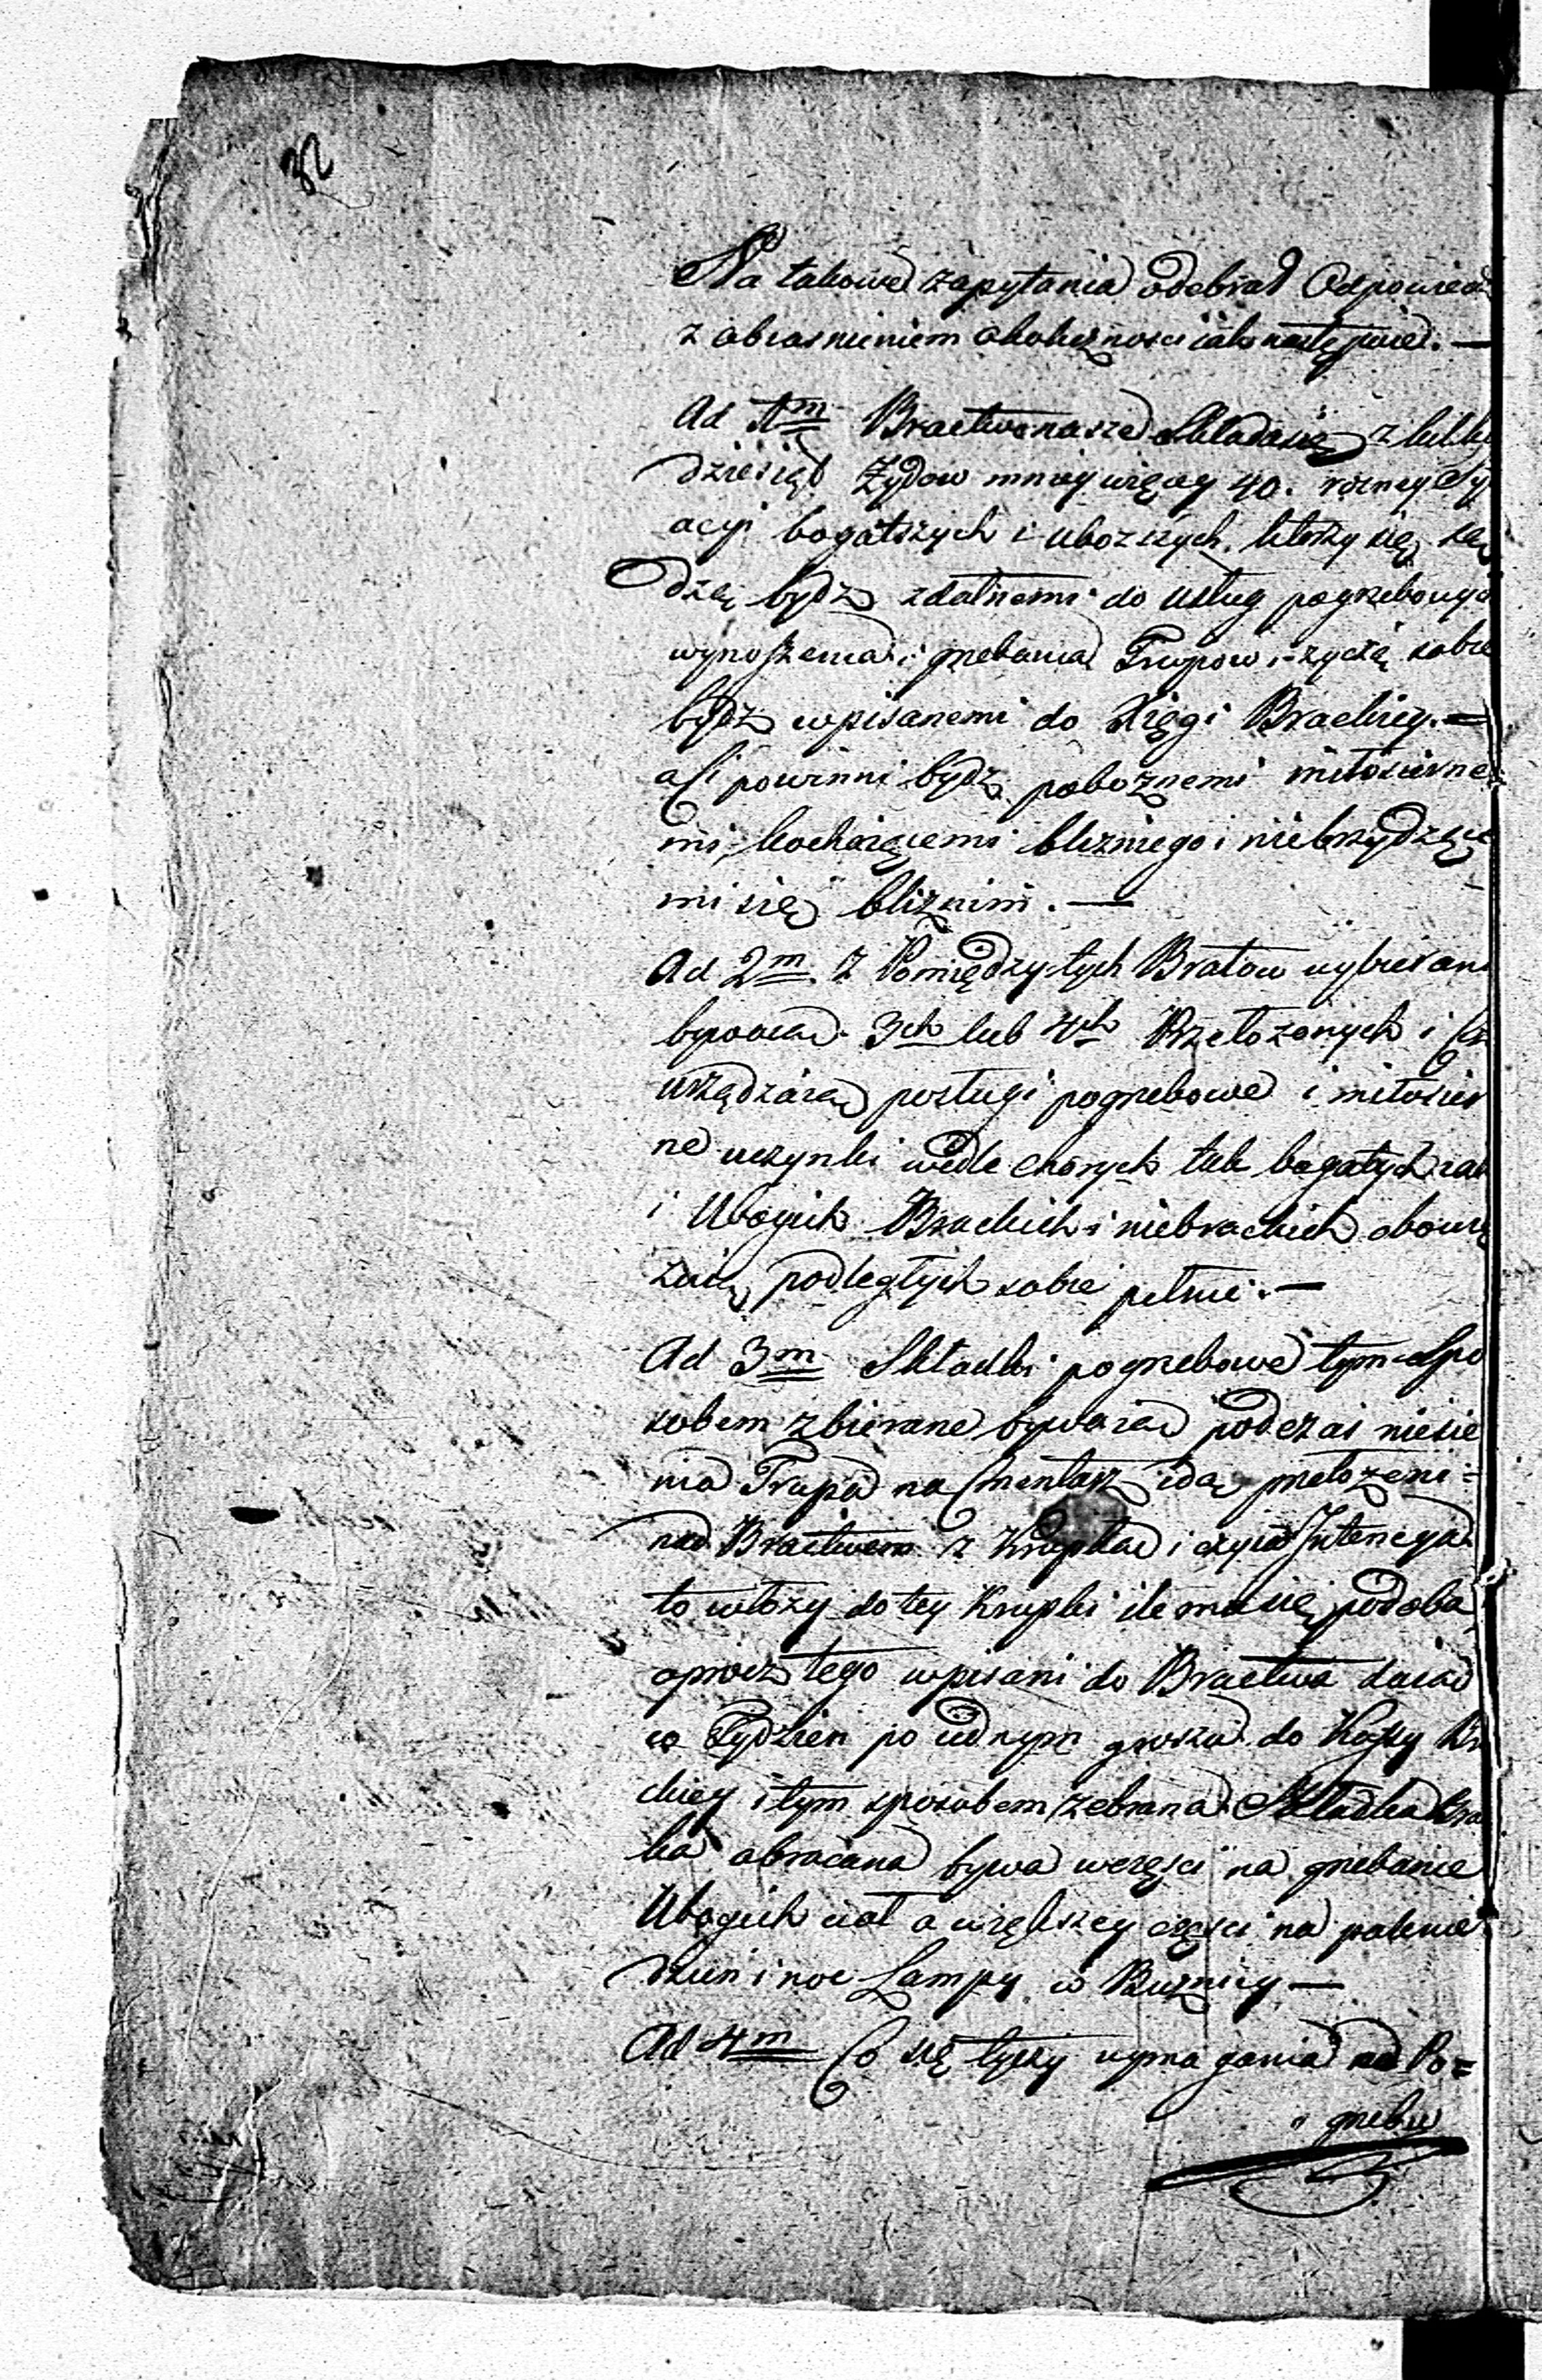 32
Na takowe zapytania odebrał Odpowied
z obiasnieniem okoliczności iak następuie. —
Ad 1m Bractwo nasze Składa się z kilku
dziesiąt Żydow mniey więcey 40. rozney Sy
acyi bogatszych i uboższych, ktorzy się są
dzą bydz zdatnemi do usług pogrzebowych
wynoszenia i grzebania Trupow i życzą sobie
bydz wpisanemi do Xięgi Brackiey. —
a Ci powinni bydz pobożnemi miłosierne
mi, kochaiącemi bliźniego i niebrzydzące
mi się bliźnim. —
Ad 2m Z Pomiędzy tych Bratow wybierani
bywaia 3ch lub 4ch Przełożonych i Ci
urządzaia posługi pogrzebowe i miłosier
ne uczynki wedle chorych tak bogatych iak
i Ubogich Brackich i niebrackich obowią
zuią podległych sobie pełnić. —
Ad 3m Składki pogrzebowe tym Spo
sobem zbierane bywaia podczas niesie
nia Trupa na Cmentarz idą przełożeni
nad Bractwem z Krupką i czyia Intencya
to włoży do tey Krupki ile mu się podoba
oprocz tego wpisani do Bractwa daia
co Tydzien po iednym groszu do Kassy Bra
ckiey i tym sposobem zebrana Składka Bra
ka obracana bywa wczęsci na grzebanie
Ubogich ciał a większey części na palenie
dzien i noc Lampy w Bużnicy —
Ad 4m Co się tyczy wymagania od Po=
grzebu